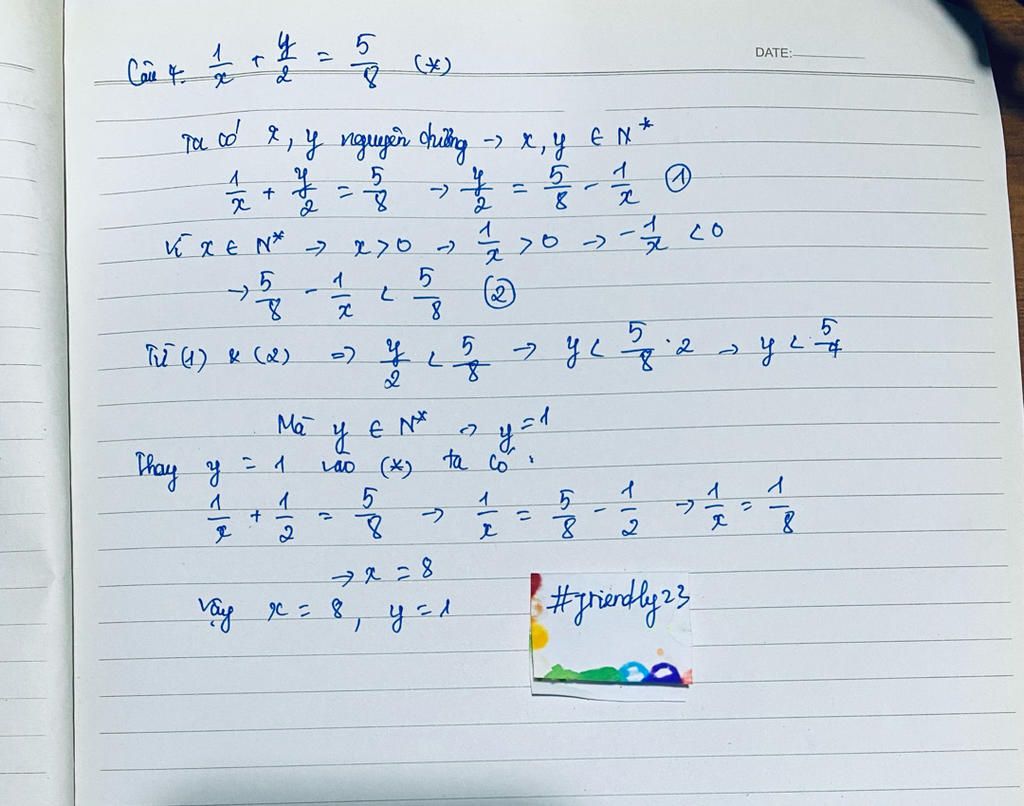 DATE:
Câu 4. 1/x + y/2 = 5/8 (*)
Ta có x, y nguyên dương → x, y ∈ N*
1/x + y/2 = 5/8 → y/2 = 5/8 - 1/x ①
Vì x ∈ N* → x > 0 → 1/x > 0 → -1/x < 0
→ 5/8 - 1/x < 5/8 ②
Từ (1) & (2) => y/2 < 5/8 → y < 5/8 . 2 → y < 5/4
Mà y ∈ N* → y = 1
Thay y = 1 vào (*) ta có :
1/x + 1/2 = 5/8 → 1/x = 5/8 - 1/2 → 1/x = 1/8
→ x = 8
Vậy x = 8, y = 1
#friendly23